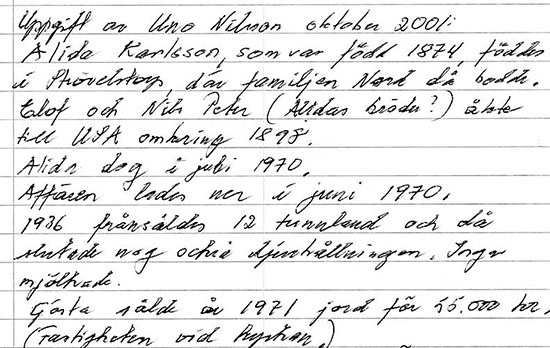 Uppgift av Uno Nilsson oktober 2001:
Alida Karlsson, som var född 1874, föddes
i Stövelstorp, där familjen Nord då bodde.
Elof och Nils Peter (Alidas bröder?) åkte
till USA omkring 1898.
Alida dog i juli 1970.
Affären lades ner i juni 1970.
1936 frånsåldes 12 tunnland och då
slutade nog också djurhållningen. Inga
mjölkade.
Gösta sålde år 1971 jord för 25.000 kr.
(Fastigheten vid